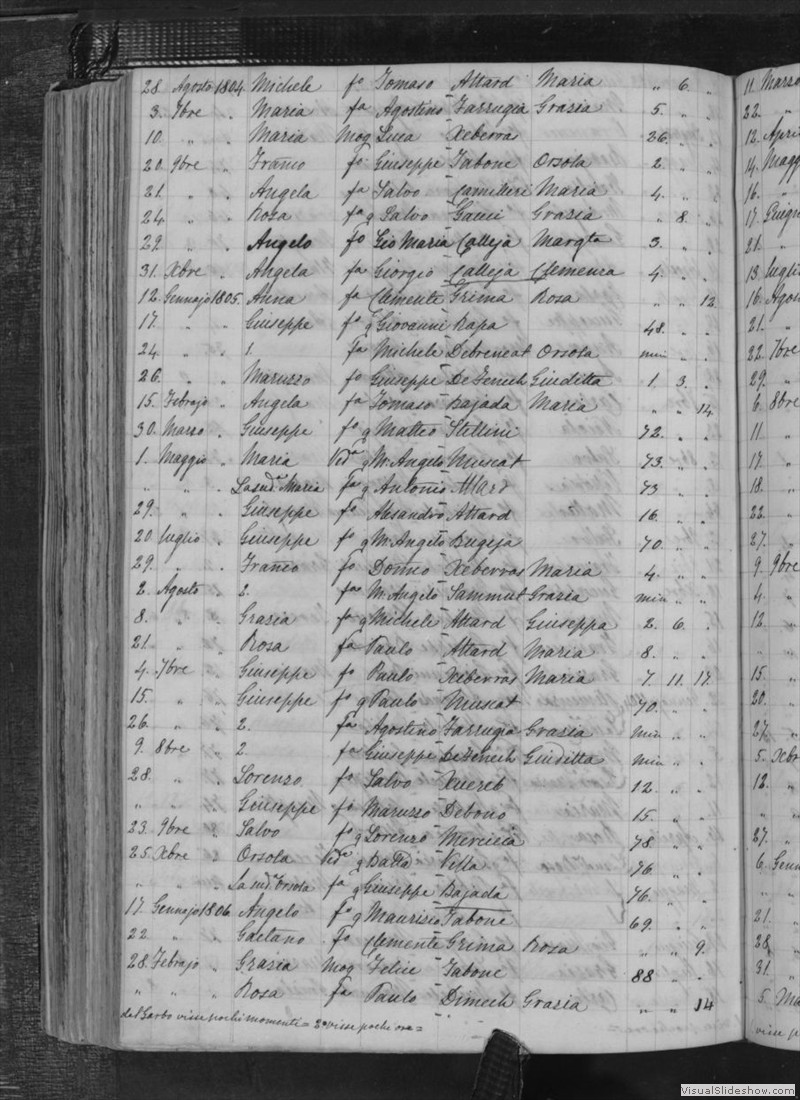 28. Agosto 1804 Michele fo Tomaso Attard Maria " 6. "
3. 7bre " Maria fa Agostino Farrugia Grasia 5. " "
10. " " Maria Mog Luca Xeberras 36. " "
20. 9bre " Franco fo Giuseppe Tabone Orsola 2. " "
21. " " Angela fa Salvo Camilleri Maria 4. " "
24. " " Rosa fa q Salvo Gauci Grasia " 8. "
29. " " Angelo fo Gio Maria Calleja Margta 3. " "
31. Xbre " Angela fa Giorgio Calleja Clemenza 4. " "
12. Gennajo 1805. Anna fa Clemente Grima Rosa " " 12.
17. " " Giuseppe fo q Giovanni Rapa 48. " "
24. " " 1. fa Michele Debrencat Orsola min " "
26. " " Marusso fo Giuseppe DeZenech Giuditta 1. 3. "
15. Febrajo " Angela fa Tomaso Bajada Maria " " 14.
30. Marzo " Giuseppe fo q Matteo Stellini 72. " "
1. Maggio " Maria Veda q M. Angelo Muscat 73. " "
" " " La sud.a Maria fa q Antonio Attard 73 " "
29. " " Giuseppe fo Alesandro Attard 16. " "
20. luglio " Giuseppe fo q M. Angelo Bugeja 70. " "
29. " " Franco fo Domco Xeberras Maria 4. " "
2. Agosto " 2. fa M. Angelo Sammut Grasia min " "
8. " " Grasia fa q Michele Attard Giuseppa 2. 6. "
21. " " Rosa fa Paulo Attard Maria 8. " "
4. 7bre " Giuseppe fo Paulo Xeberras Maria 7. 11. 17.
15. " " Giuseppe fo q Paulo Muscat 70. " "
26. " " 2. fa Agostino Farrugia Grasia min " "
9. 8bre " 2 fa Giuseppe DeZenech Giuditta min " "
28. " " Lorenzo fo Salvo Xuereb 12. " "
" " " Giuseppe fo Marusso Debono 15. " "
23. 9bre " Salvo fo q Lorenzo Mercieca 78 " "
25. Xbre " Orsola Veda q Batta Vella 76. " "
" " " La sud.a Orsola fa q Giuseppe Bajada 76. " "
17. Gennajo 1806. Angelo fo q Maurisio Tabone 69. " "
22 " " Gaetano fo Clemente Grima Rosa " " 9.
28. Febrajo " Grasia Mog Felice Tabone 88 " "
" " " Rosa fa Paulo Dimech Grasia " " 14
visse pochi momenti = 2° visse poche ore =
11. Marzo
22. "
12. April
14. Magg
16. "
17. Giugn
21. "
13. luglio
16. Agos
21. "
22. 7bre
29. "
6. 8bre
11 "
17. "
18. "
22. "
27. "
9. 9bre
4. "
12. "
15. "
20. "
27. "
5. Xbr
12. "
27. "
6. Genn
21. "
28. "
31. "
5. Ma
visse p
VisualSlideshow.com